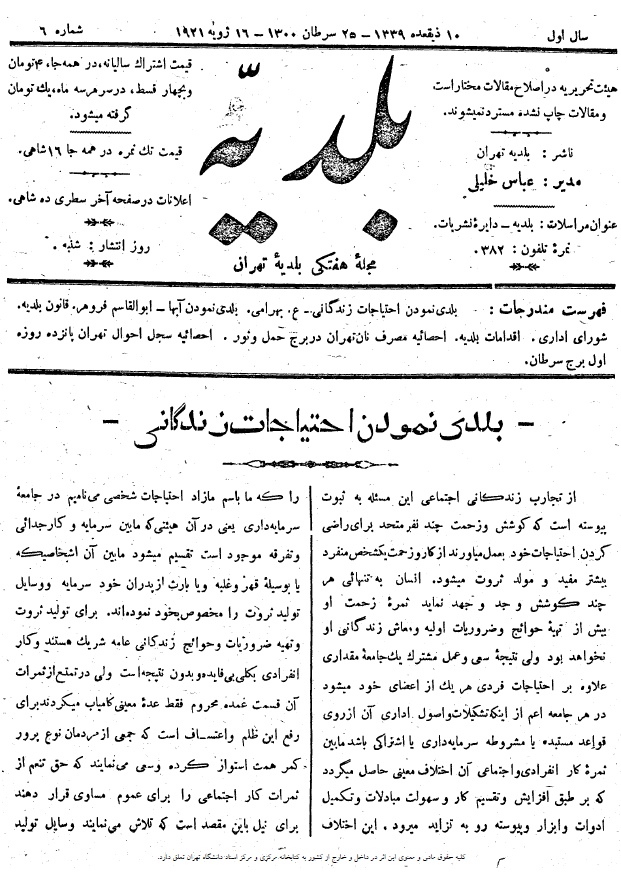 سال اول
۱۰ ذیقعده ۱۳۳۹ — ۲۵ سرطان ۱۳۰۰ — ۱۶ ژویه ۱۹۲۱
شماره ۶
هیئت تحریریه در اصلاح مقالات مختار است
و مقالات چاپ نشده مسترد نمیشوند.
ناشر : بلدیه تهران
مدیر : عباس خلیلی
عنوان مراسلات : بلدیه – دایرهٔ نشریات.
نمرهٔ تلفون : ۳۸۲.
بلدیّه
مجلهٔ هفتگی بلدیهٔ تهران
قیمت اشتراك سالیانه، در همه جا، ۴ تومان
و بچهار قسط، در سر هر سه ماه، یك تومان
گرفته میشود.
قیمت تك نمره در همه جا ۱۶ شاهی.
اعلانات در صفحه آخر سطری ده شاهی.
روز انتشار : شنبه .
فهرست مندرجات : بلدی نمودن احتیاجات زندگانی – ع. بهرامی. بلدی نمودن آبها – ابوالقاسم فروهر. قانون بلدیه.
شورای اداری. اقدامات بلدیه. احصائیه مصرف نان تهران در برج حمل و ثور . احصائیه سجل احوال تهران پانزده روزه
اول برج سرطان.
– بلدی نمودن احتیاجات زندگانی –
از تجارب زندگانی اجتماعی این مسئله به ثبوت
پیوسته است که کوشش و زحمت چند نفر متحد برای راضی
کردن احتیاجات خود بعمل میاورند از کار و زحمت یکشخص منفرد
بیشتر مفید و مولد ثروت میشود. انسان به تنهائی هر
چند کوشش و جد و جهد نماید ثمرهٔ زحمت او
بیش از تهیهٔ حوائج و ضروریات اولیه و معاش زندگانی او
نخواهد بود ولی نتیجهٔ سعی و عمل مشترك یك جامعهٔ مقداری
علاوه بر احتیاجات فردی هر یك از اعضای خود میشود
در هر جامعه اعم از اینکه تشکیلات و اصول اداری آن از روی
قواعد مستبده یا مشروطه سرمایه داری یا اشتراکی باشد مابین
ثمرهٔ کار انفرادی و اجتماعی آن اختلاف معینی حاصل میگردد
که بر طبق افزایش و تقسیم کار و سهولت مبادلات و تکمیل
ادوات و ابزار و پیوسته رو به تزاید میرود . این اختلاف
را که ما باسم مازاد احتیاجات شخصی می نامیم در جامعهٔ
سرمایه داری یعنی در آن هیئتی که مابین سرمایه و کار جدائی
و تفرقه موجود است تقسیم میشود مابین آن اشخاصیکه
یا بوسیلهٔ قهر و غلبه و یا بارث از پدران خود سرمایه و وسایل
تولید ثروت را مخصوص بخود نموده اند. برای تولید ثروت
و تهیه ضروریات و حوائج زندگانی عامه شریك هستند و کار
انفرادی بکلی بی فایده و بدون نتیجه است ولی در تمتع از ثمرات
آن قسمت عمده محروم فقط عدهٔ معینی کامیاب میگردند برای
رفع این ظلم و اعتساف است که جمعی از مردمان نوع پرور
کمر همت استوار کرده و سعی می نمایند که حق تنعم از
ثمرات کار اجتماعی را برای عموم مساوی قرار دهند
برای نیل باین مقصد است که تلاش می نمایند وسایل تولید
کلیه حقوق مادی و معنوی این اثر در داخل و خارج از کشور به کتابخانه مرکزی و مرکز اسناد دانشگاه تهران تعلق دارد.